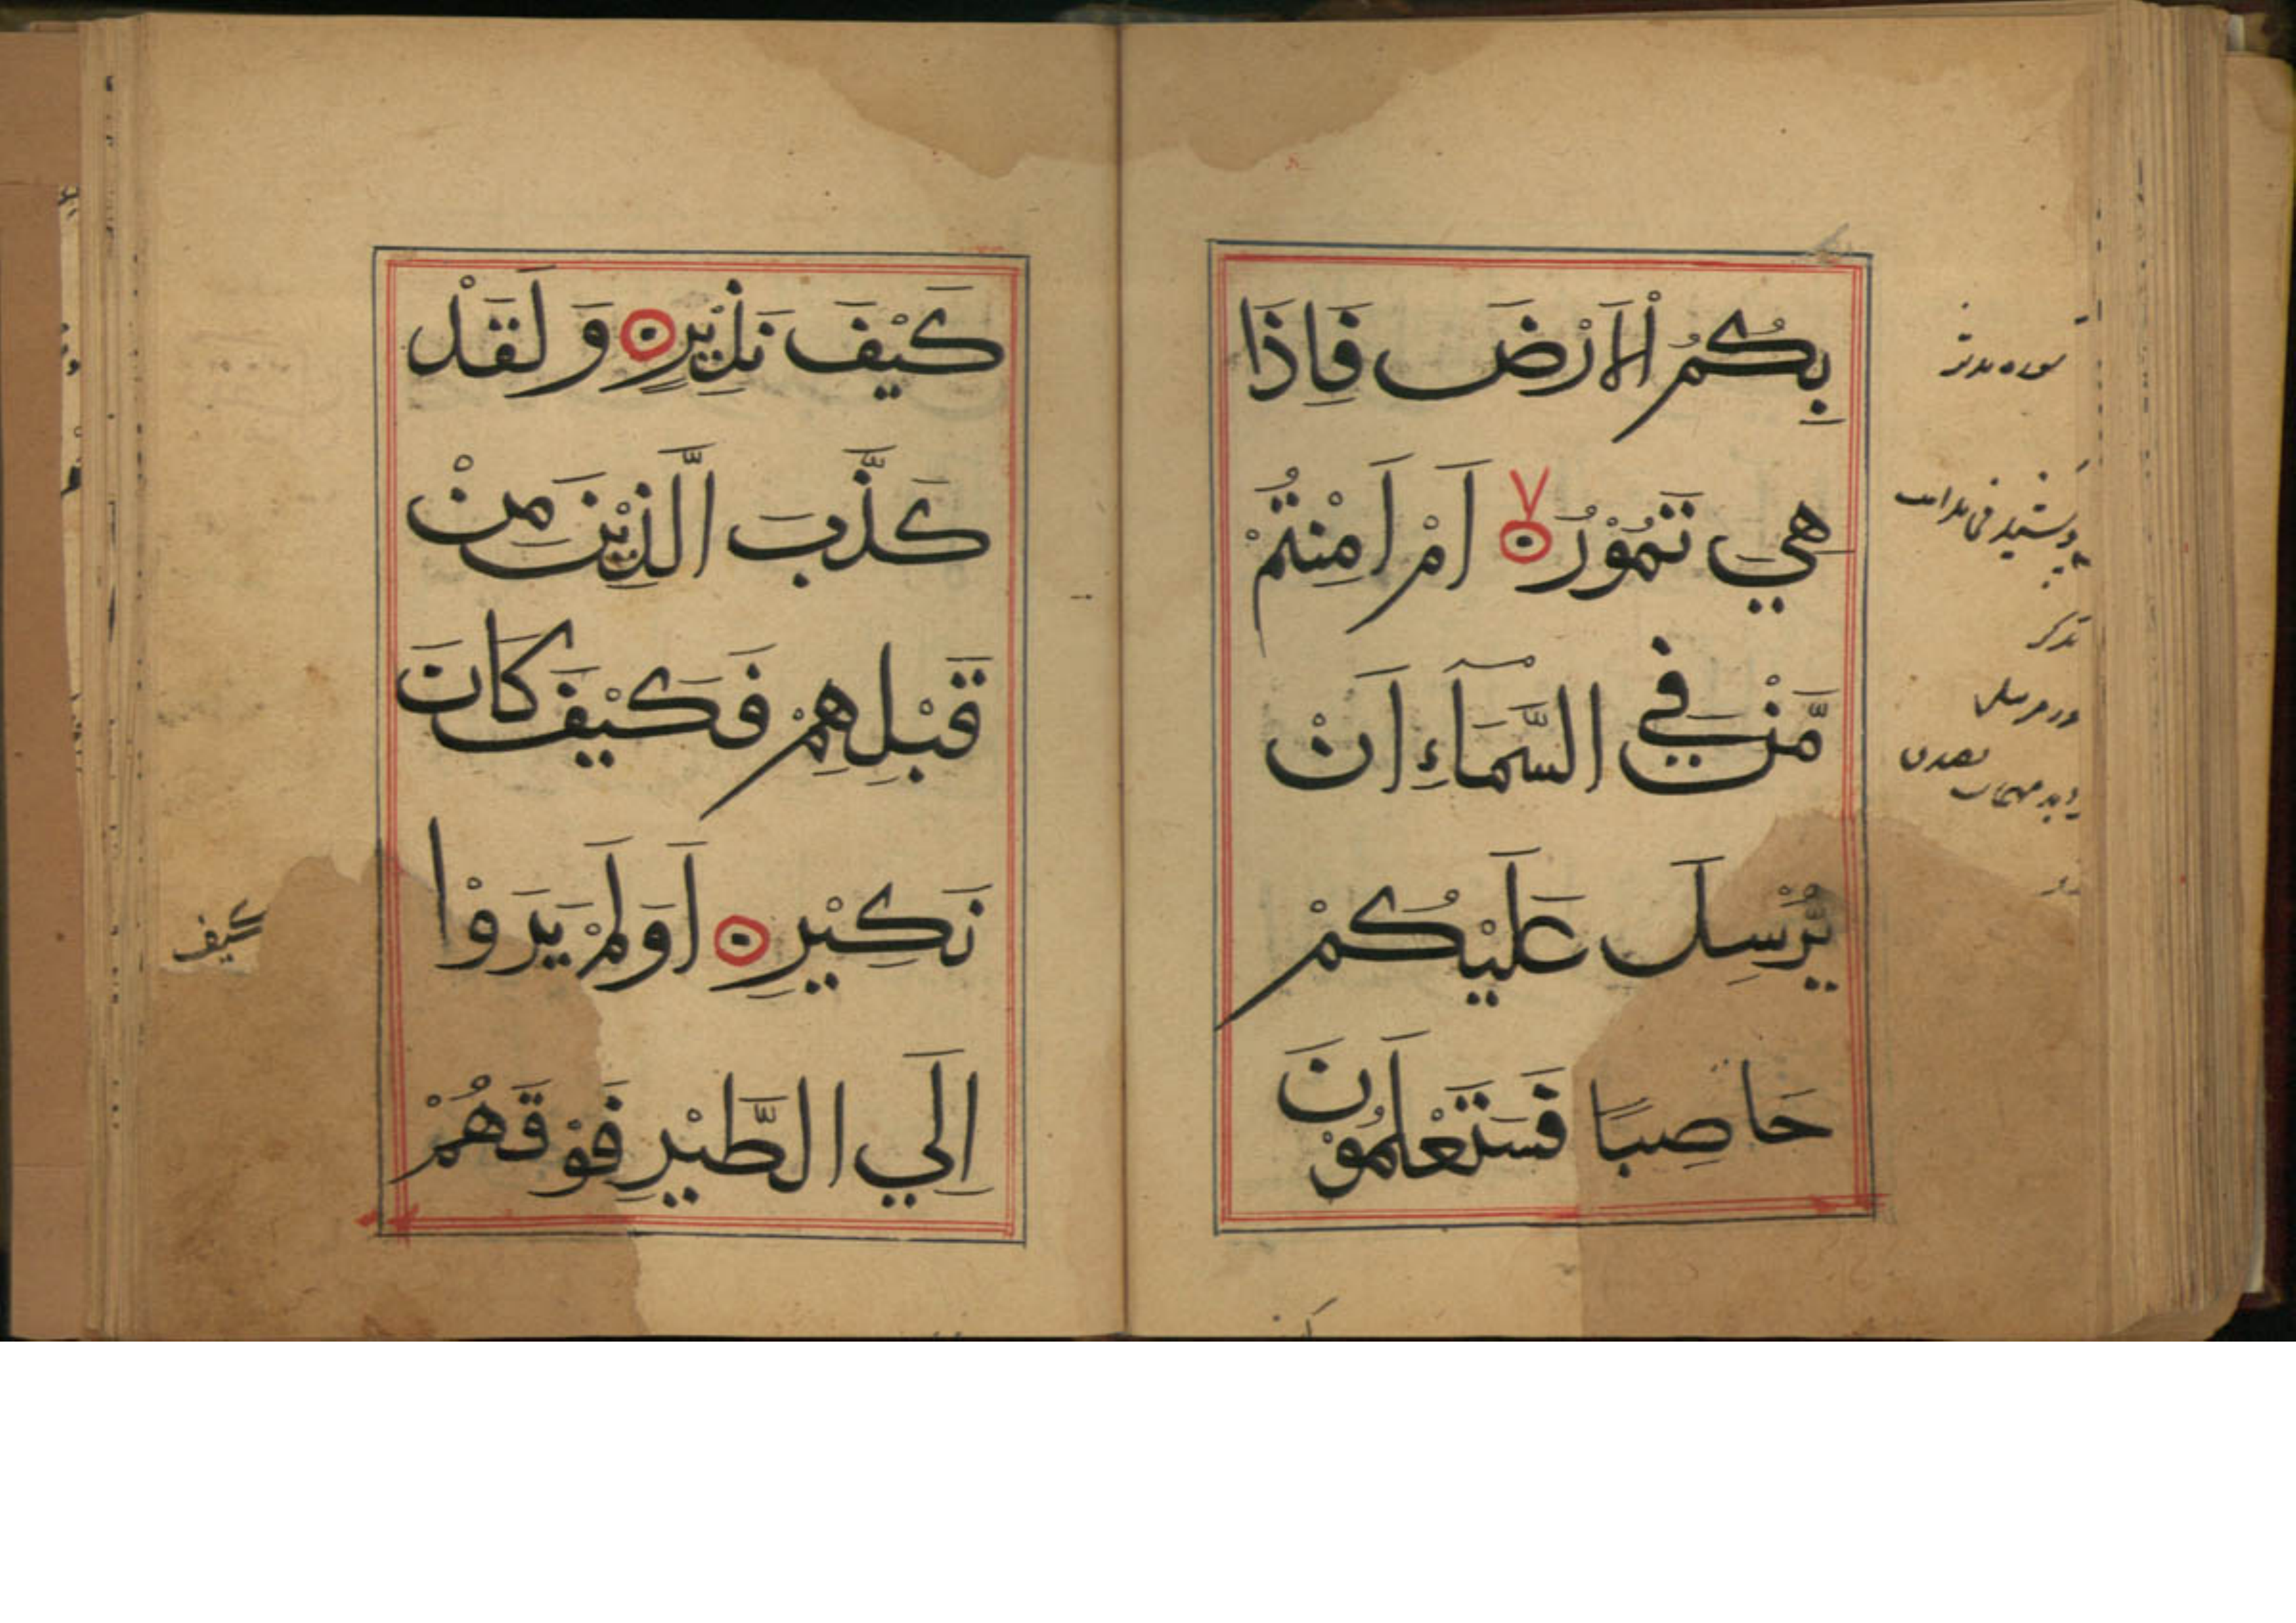 بِكُمُ الْاَرْضَ فَاِذَا
هِي تَمُوْرُ اَمْ اَمِنْتُمْ
مَّنْ فِي السَّمَآءِ اَنْ
يُرْسِلَ عَلَيْكُمْ
حَاصِبًا فَسَتَعْلَمُوْنَ
كَيْفَ نَذِيْرِ وَ لَقَدْ
كَذَّبَ الَّذِيْنَ مِنْ
قَبْلِهِمْ فَكَيْفَ كَانَ
نَكِيْرِ اَوَلَمْ يَرَوْا
اِلَي الطَّيْرِ فَوْقَهُمْ
سوره مدثر
كيف